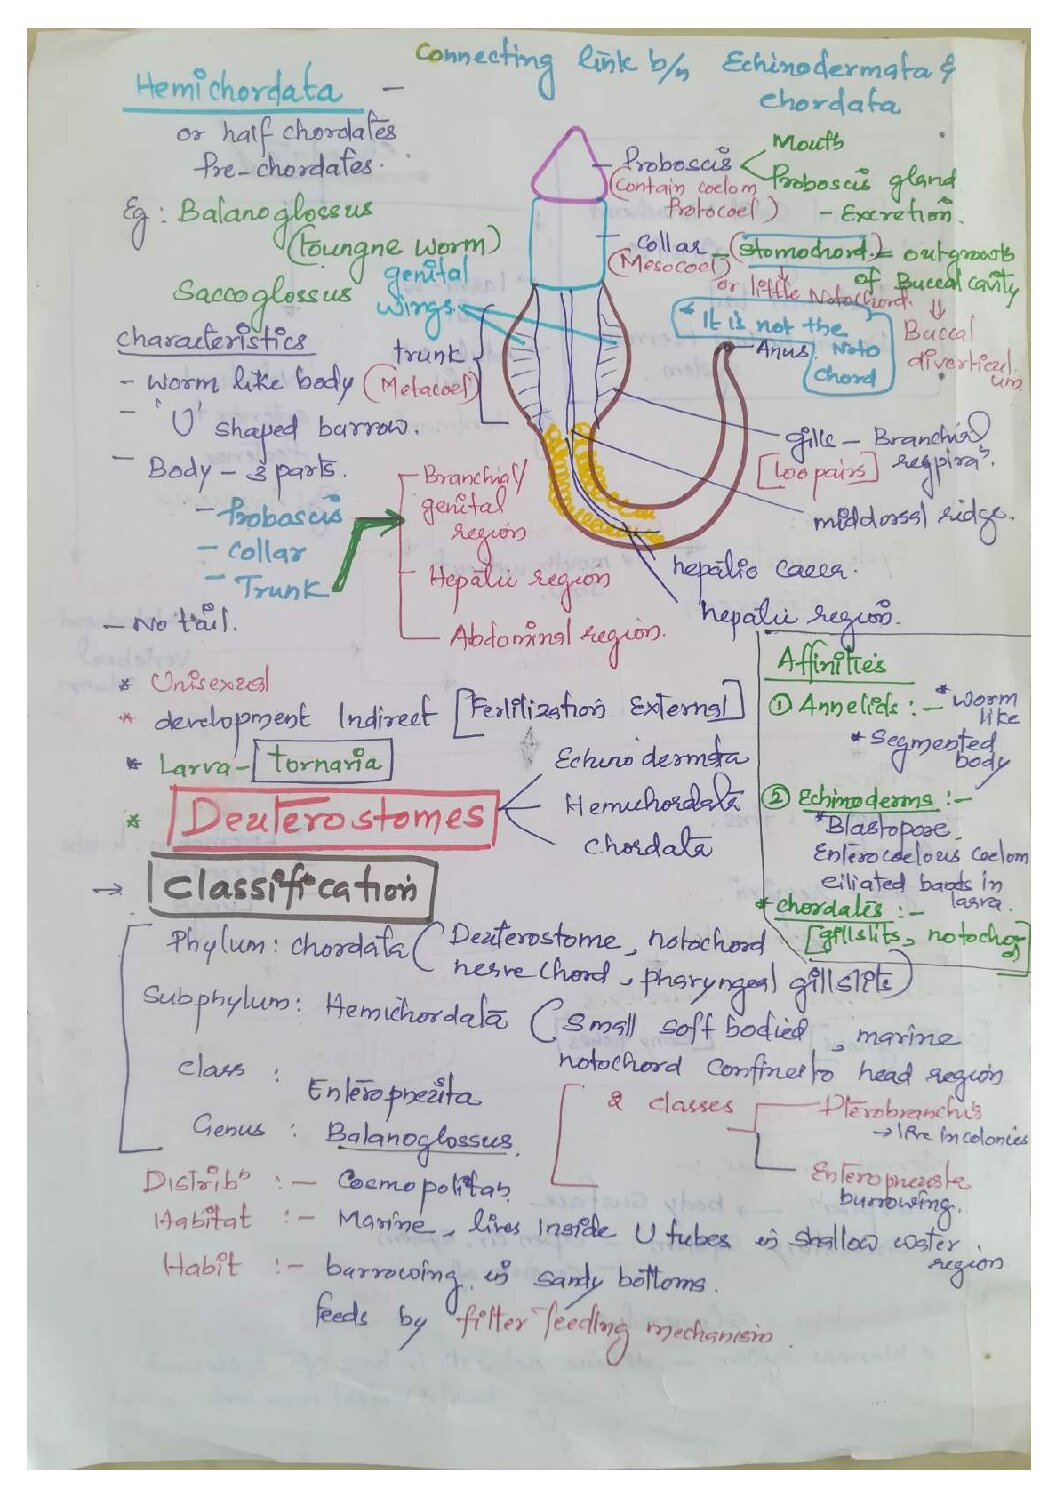 Connecting link b/n Echinodermata &
chordata
Hemichordata -
or half chordates
Pre-chordates.
Eg: Balanoglossus
(toungne worm)
Saccoglossus
genital
wings
Proboscis
Mouth
Proboscis gland
- Excretion.
(contain coelom
Protocoel)
collar - (stomochord) = outgrowth
(Mesocoel)
of Buccal cavity
or little Notochord.
* It is not the
Noto
chord
Buccal
diverticul
um
Anus
characteristics
- worm like body
- 'U' shaped barrow.
- Body - 3 parts.
- Proboscis
- collar
- Trunk
- No tail.
trunk
(Metacoel)
gills - Branchial
respiraⁿ.
[100 pairs]
middorsal ridge.
hepatic caeca.
hepatic region.
- Branchial/
genital
region
- Hepatic region
- Abdominal region.
* Unisexual
* development Indirect [Fertilization External]
* Larva - tornaria
* Deuterostomes
Echinodermata
Hemichordata
chordata
Affinities
① Annelids : - * worm
like
* segmented
body
② Echinoderms :-
* Blastopose
Enterocoelous coelom
ciliated bands in
larva.
* chordates :-
[gillslits, notochord]
→ Classification
Phylum : chordata (Deuterostome, notochord
nerve chord, pharyngeal gillslits)
Subphylum : Hemichordata (small soft bodied, marine
notochord confined to head region
class :
Enteropneusta
Genus : Balanoglossus.
2 classes
Pterobranchus
→ live in colonies
Enteropneuste
burrowing.
Distribⁿ :- Cosmopolitan
Habitat :- Marine, lives inside U tubes in shallow water
region
Habit :- barrowing in sandy bottoms.
feeds by filter feeding mechanism.